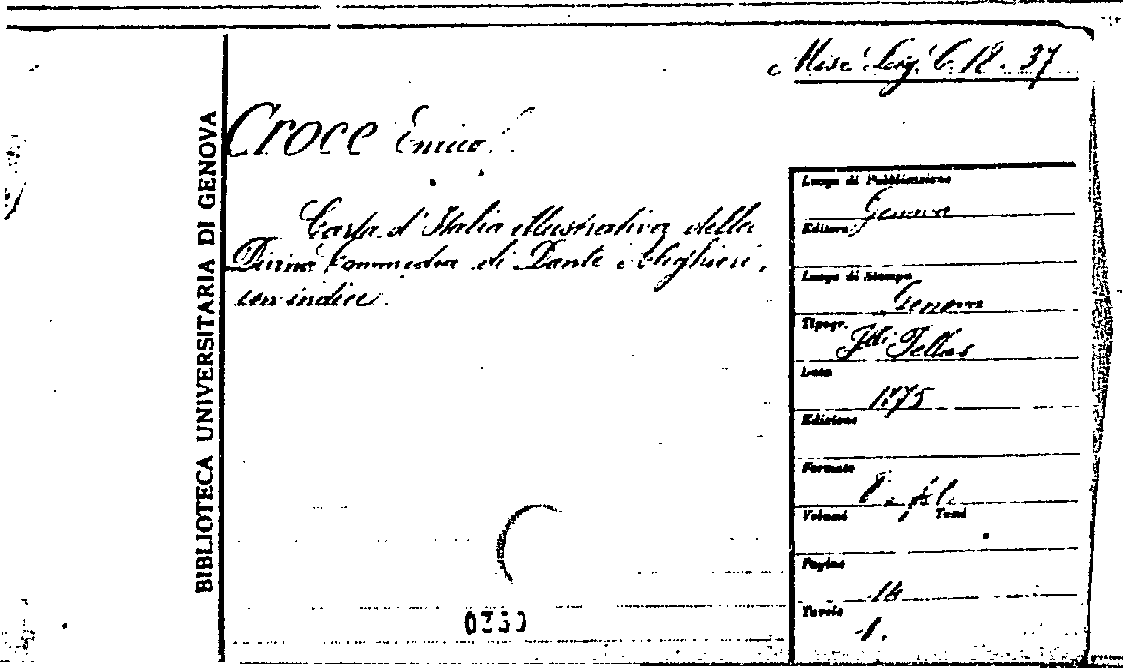 Misc. Lig. C. 12. 37
BIBLIOTECA UNIVERSITARIA DI GENOVA
Croce Enrico.
Carta d'Italia illustrativa della
Divina Commedia di Dante Alighieri,
con indice.
Luogo di Pubblicazione
Genova
Editore
Luogo di Stampa
Genova
Tipogr.
Flli Pellas
Data
1875
Edizione
Formato
8.
Volumi Tomi
Pagine
14
Tavole
1.